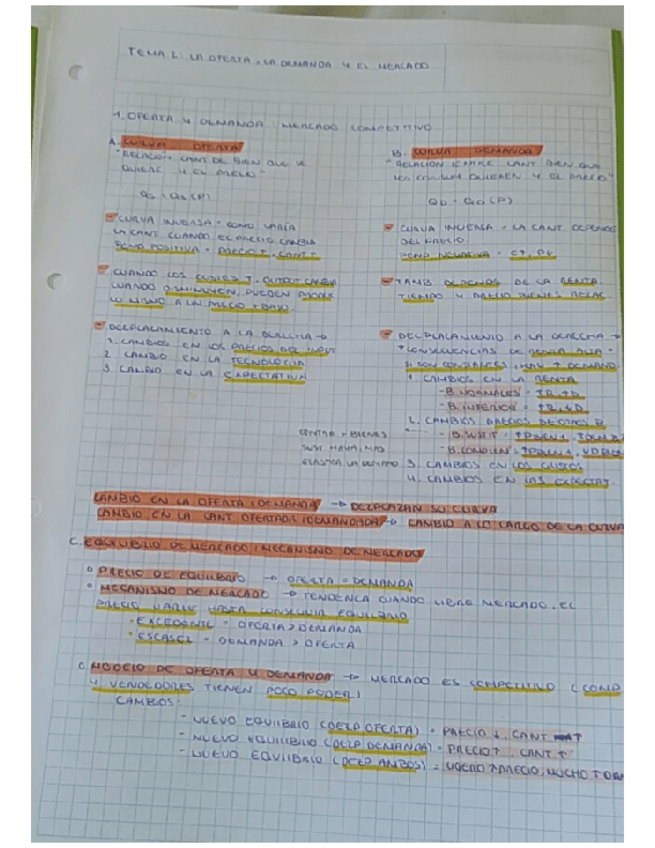 TEMA 2: LA OFERTA, LA DEMANDA Y EL MERCADO
1. OFERTA Y DEMANDA: MERCADO COMPETITIVO
A. CURVA OFERTA
"RELACION CANT DE BIEN QUE SE
QUIERE Y EL PRECIO"
Qs = Qs (P)
CURVA INVERSA = COMO VARÍA
LA CANT CUANDO EL PRECIO CAMBIA
PEND POSITIVA = PRECIO↑, CANT↑
CUANDO LOS COSTES ↑, OUTPUT CAMBIA
CUANDO DISMINUYEN, PUEDEN
LO MISMO A UN PRECIO + BAJO.
DESPLAZAMIENTO A LA DERECHA →
1. CAMBIOS EN LOS PRECIOS DEL INPUT
2. CAMBIO EN LA TECNOLOGIA
3. CAMBIO EN LA EXPECTATIVA
B. CURVA DEMANDA
"RELACION ENTRE CANT BIEN QUE
LOS CONSUM QUIEREN Y EL PRECIO"
QD = QD (P)
CURVA INVERSA = LA CANT DEPENDE
DEL PRECIO.
PEND NEGATIVA = C↑, P↓
TAMB DEPENDE DE LA RENTA,
TIEMPO Y PRECIO BIENES RELAC.
DESPLAZAMIENTO A LA DERECHA →
CONSECUENCIAS DE RENTA ALTA
SI SON CONSTANTES, HAY ↑ DEMANDA
1. CAMBIOS EN LA RENTA
-B. NORMALES = ↑R, ↑D
-B. INFERIOR = ↑R, ↓D
2. CAMBIOS PRECIOS DE OTROS B
- B. SUSTIT =
- B. COMPLEM =
3. CAMBIOS EN LOS GUSTOS
4. CAMBIOS EN LAS EXPECTAT.
CONTRA + BIENES
SUST HAYA, MAS
ELASTICA LA DEMAND
CAMBIO EN LA OFERTA (DEMANDA) → DESPLAZAN SU CURVA
CAMBIO EN LA CANT OFERTADA (DEMANDADA) → CAMBIO A LO LARGO DE LA CURVA
C. EQUILIBRIO DE MERCADO: MECANISMO DE MERCADO
PRECIO DE EQUILIBRIO → OFERTA = DEMANDA
MECANISMO DE MERCADO → TENDENCA CUANDO LIBRE MERCADO, EL
PRECIO VARIE HASTA CONSEGUIR EQUILIBRIO
- EXCEDENTE = OFERTA > DEMANDA
- ESCASEZ = DEMANDA > OFERTA
C. MODELO DE OFERTA Y DEMANDA → MERCADO ES COMPETITIVO (COMP
Y VENDEDORES TIENEN POCO PODER)
CAMBIOS:
- NUEVO EQUILIBRIO (DESP OFERTA) = PRECIO ↓, CANT ↑
- NUEVO EQUILIBRIO (DESP DEMANDA) = PRECIO↑, CANT ↑
- NUEVO EQUILIBRIO (DESP AMBOS) = PRECIO, MUCHO